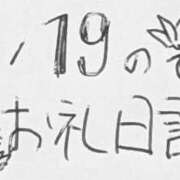 /19の
お礼日